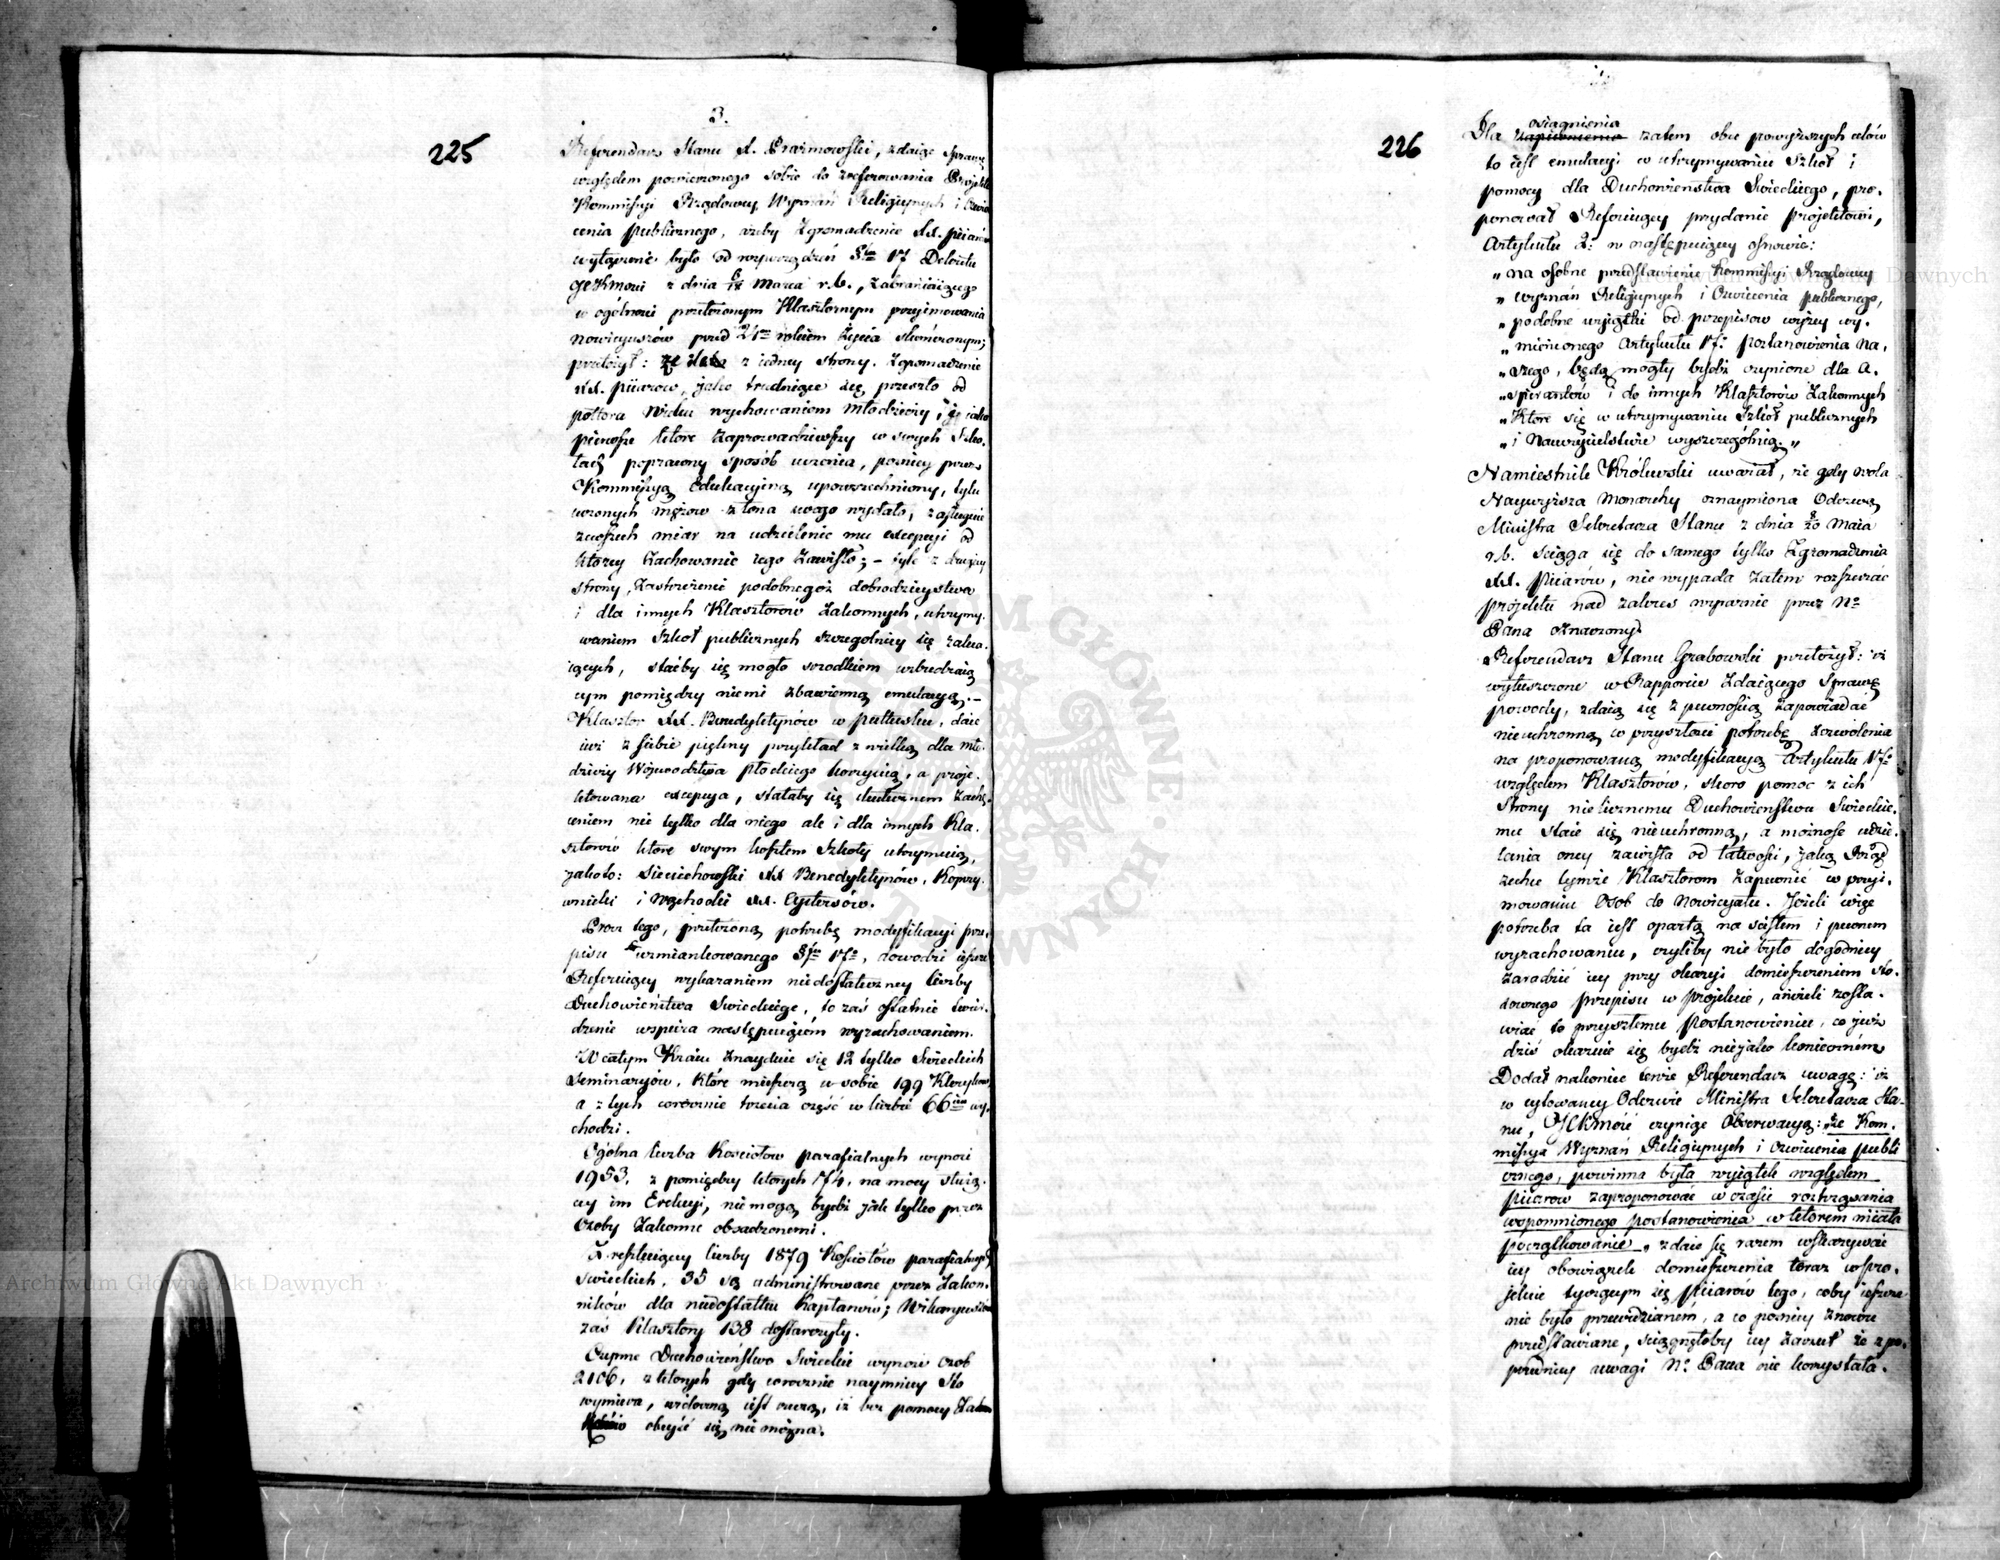 225
3.
Referendarz Stanu X. Prażmowski, zdaiąc Sprawę
względem powierzonego sobie do zreferowania Projektu
Kommissyi Rządowey Wyznań Religiynych i Oświe
cenia Publicznego, ażeby Zgromadzenie XX. Piiarów
wyłączone było od rozporządzeń 17 Dekretu
JCKMości z dnia 6/18 Marca r. b., zabraniaiącego
w ogólności przełożonym Klasztornym przyimowania
Nowicyuszów przed 24m rokiem życia skończonym;
przełożył: że z iedney strony Zgromadzenie
XX. Piiarów, jako trudniące się przeszło od
półtora Wieku wychowaniem Młodzieży i jako
pierwsze które zaprowadziwszy w swych Szko-
łach poprawny sposób uczenia, pozniey przez
Kommissyą Edukacyiną upowszechniony, tylu
uczonych mężów z łona swego wydało, zasługuie
ze wszech miar na udzielenie mu excepcyi od
którey zachowanie iego zawisło; – tyle z drugiey
strony, zastrzeżenie podobnegoż dobrodzieystwa
i dla innych Klasztorów zakonnych, utrzymy-
waniem Szkół publicznych szczególniey się zaleca-
iących, stać by się mogło srzodkiem wzbudzaią
cym pomiędzy niemi zbawienną emulacyą. –
Klasztor XX. Benedyktynów w Pułtusku, daie
iuż z siebie piękny przykład z wielką dla Mło-
dzieży Woiewodztwa Płockiego korzyścią, a proje-
ktowana excepcya, stałaby się skutecznem zachę-
ceniem nie tylko dla niego ale i dla innych Kla-
sztorów które swym kosztem Szkoły utrzymuią,
jakoto: Sieciechowski XX Benedyktynów, Koprzy-
wnicki i Wąchocki XX. Cystersów.
Prócz tego, przełożoną potrzebę modyfikacyi prze-
pisu wzmiankowanego 17o, dowodzi ieszcze
Referuiący wykazaniem niedostateczney liczby
Duchowieństwa Swieckiego, to zaś ostatnie twier-
dzenie wspiera następuiącém wyrachowaniem.
W całym Kraiu znayduie się 12 tylko Swieckich
Seminaryów, które mieszczą w sobie 199 Kleryków,
a z tych corocznie trzecia część w liczbie 66iu wy-
chodzi.
Ogólna liczba Kościołów parafialnych wynosi
1953, z pomiędzy których 74, na mocy służą-
cey im Erekcyi, nie mogą bydź jak tylko przez
Osoby Zakonne obsadzonemi.
Z resztuiącey liczby 1879 Kościołów parafialnych
Swieckich, 35 są administrowane przez Zakon-
ników dla niedostatku Kapłanów; Wikaryuszów
zaś Klasztory 138 dostarczyły.
Czynne Duchowieństwo Swieckie wynosi Osób
2106, z których gdy corocznie naymniey Sto
wymiera, widoczną iest rzeczą, iż bez pomocy Zakon
ników obeyść się nie można.
226
osiągnienia
Dla zapewnienia zatem obu powyższych celów
to iest emulacyi w utrzymywaniu Szkół i
pomocy dla Duchowieństwa Swieckiego, pro-
ponował Referuiący przydanie projektowi,
Artykułu 2: w następuiącey osnowie:
„ na osobne przedstawienie Kommissyi Rządowey
„ Wyznań Religiynych i Oświecenia publicznego,
„ podobne wyiątki od przepisów wyżey wy-
„ mienionego Artykułu 17. Postanowienia Na-
„ szego, będą mogły bydź czynione dla A-
„ spirantów i do innych Klasztorów Zakonnych
„ Które się w utrzymywaniu Szkół publicznych
„ i Nauczycielstwie wyszczególnią. „
Namiestnik Królewski uważał, że gdy wola
Naywyższa Monarchy oznaymiona Odezwą
Ministra Sekretarza Stanu z dnia 8/20 Maia
r. b. sciąga się do samego tylko Zgromadzenia
XX. Piiarów, nie wypada zatem rozszerzać
projektu nad zakres wyraźnie przez N.
Pana oznaczony.
Referendarz Stanu Grabowski przełożył: iż
wyłuszczone w Rapporcie zdaiącego Sprawę
powody, zdaią się z pewnością zapowiadać
nieuchronną w przyszłości potrzebę zezwolenia
na proponowaną modyfikacyą Artykułu 17o
względem Klasztorów, skoro pomoc z ich
strony nielicznemu Duchowieństwu Swieckie-
mu staie się nieuchronną, a możność udzie-
lania oney zawisła od łatwości, jaką Rząd
zechce tymże Klasztorom zapewnić w przyi-
mowaniu Osób do Nowicyatu. Jeżeli więc
potrzeba ta iest opartą na ścisłem i pewnem
wyrachowaniu, czyliby nie było dogodniey
zaradzić iey przy okazyi domieszczeniem sto-
sownego przepisu w projekcie, aniżeli zosta-
wiać to przyszłemu Postanowieniu, co już
dziś okazuie się bydź niejako koniecznem
Dodał nakoniec tenże Referendarz uwagę: iż
w cytowaney Odezwie Ministra Sekretarza Sta-
nu, JCKMość czyniąc Obserwacyą: „że Kom-
missya Wyznań Religiynych i Oświecenia publi
cznego, powinna była wyiątek względem
Piiarów zaproponować w czasie roztrząsania
wspomnionego Postanowienia w którem miała
początkowanie„ zdaie się razem wskazywać
iey obowiązek domieszczenia teraz w pro-
jekcie tyczącym się Piiarów tego, coby ieszcze
nie było przewidzianém, a co pozniey znowu
przedstawiane, sciągnęłoby iey zarzut że z po-
przedniey uwagi N. Pana nie korzystała.
Archiwum Główne Akt Dawnych